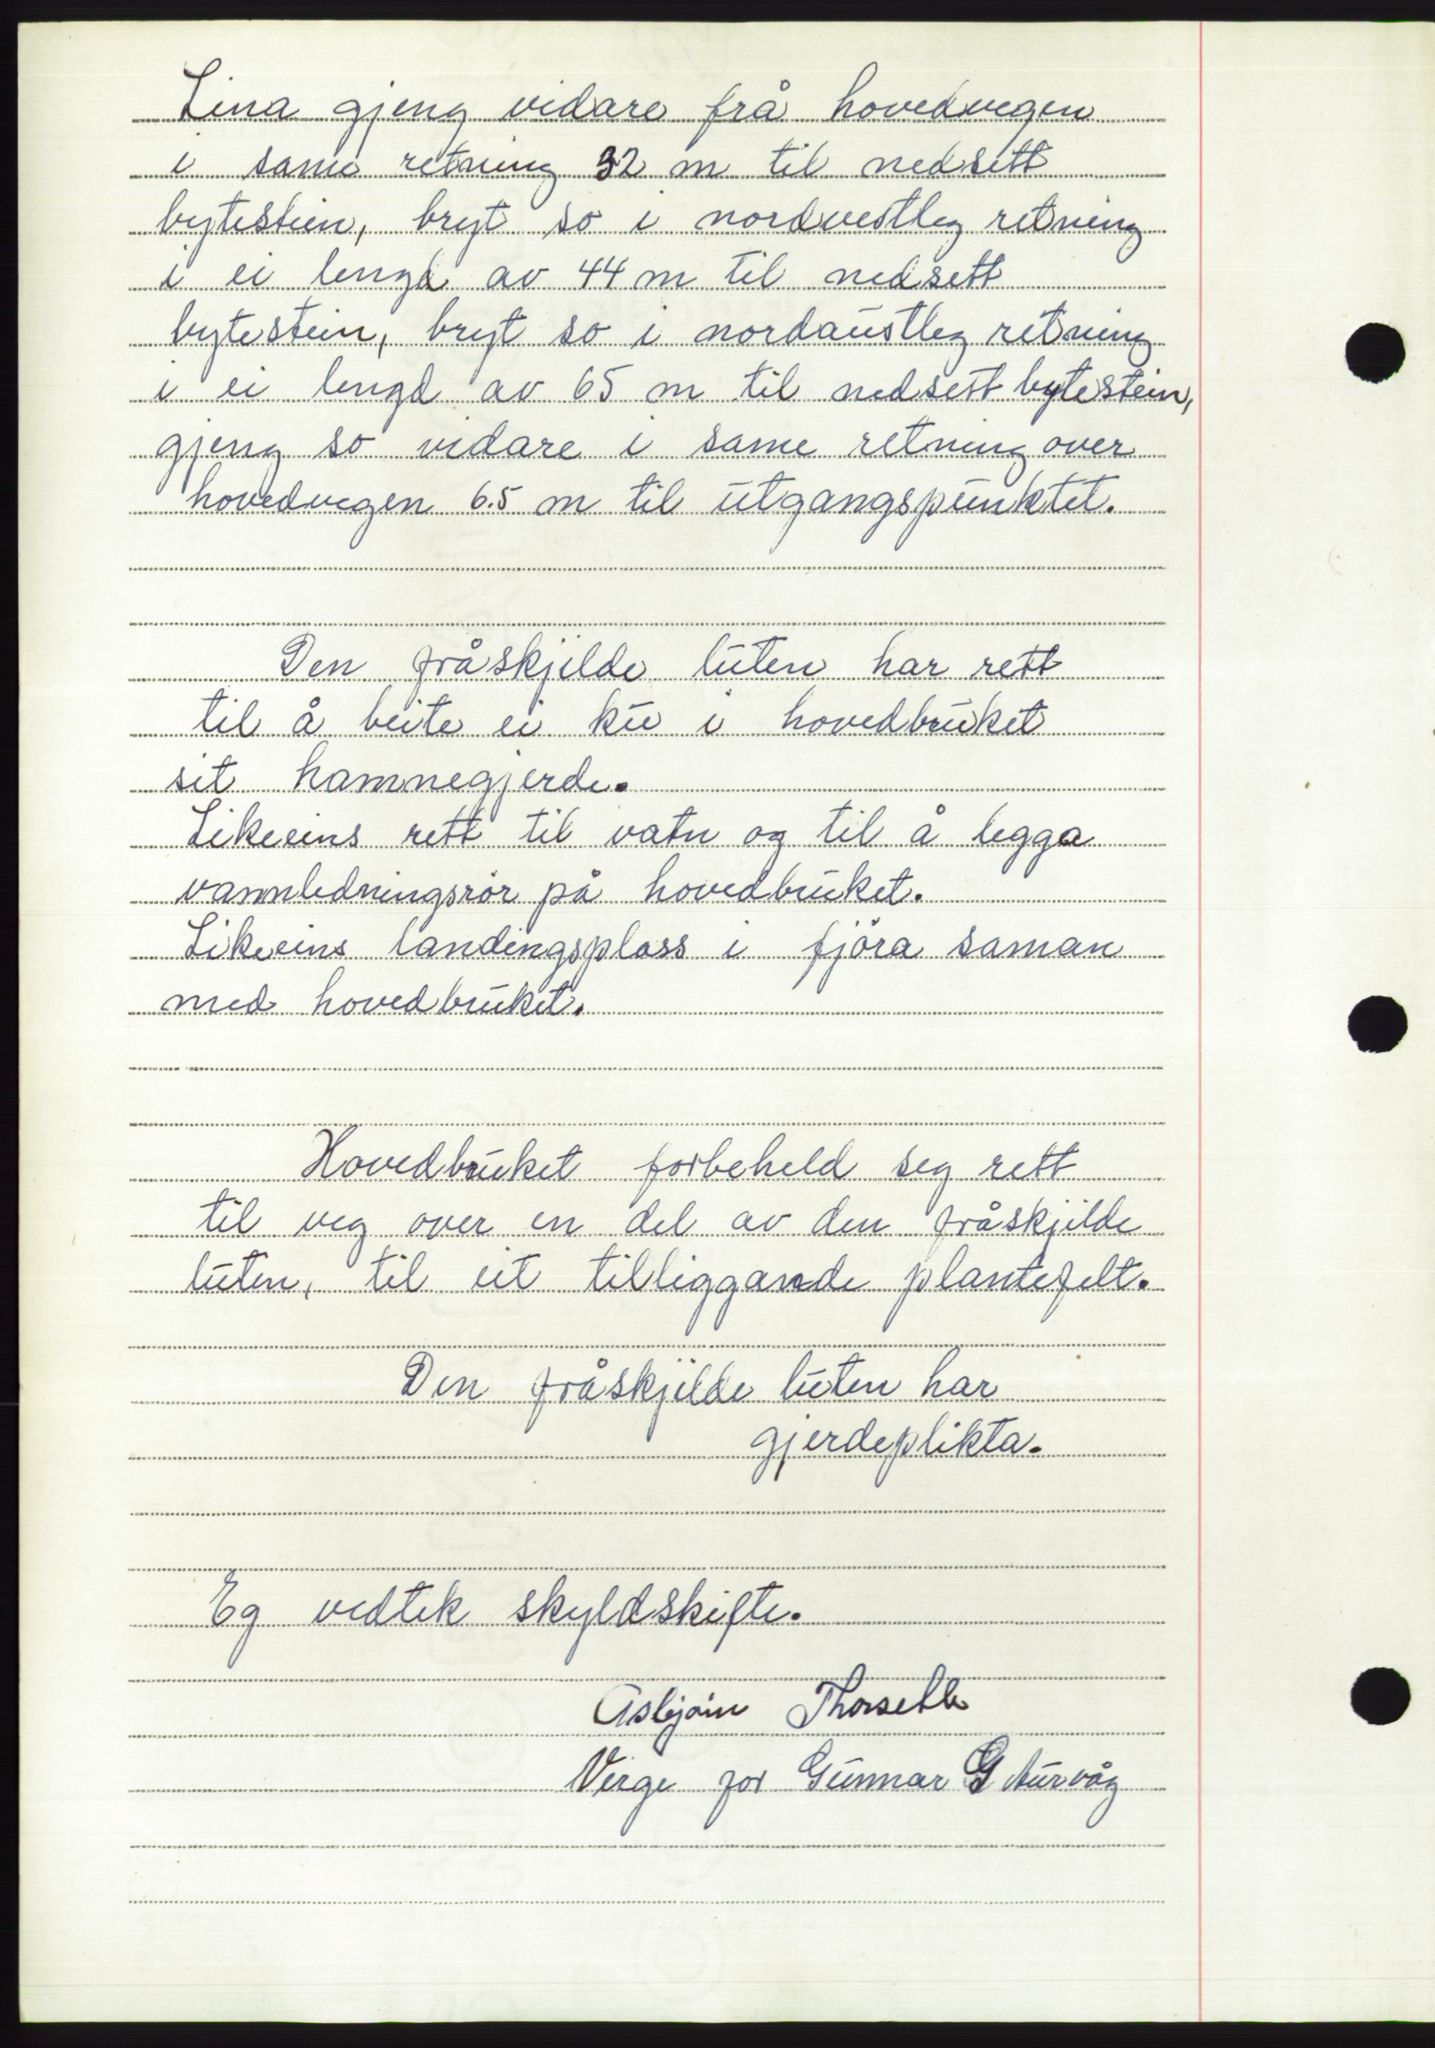 Lina gjeng vidare frå hovedvegen
i same retning 32 m til nedsett
bytestein, bryt so i nordvestleg retning
i ei lengd av 44 m til nedsett
bytestein, bryt so i nordaustleg retning
i ei lengd av 65 m til nedsett bytestein,
gjeng so vidare i same retning over
hovedvegen 6.5 m til utgangspunktet.
Den fråskjelde luten har rett
til å beite ei ku i hovedbruket
sit hamnegjerde.
Likeeins rett til vatn og til å legga
vannledningsrör på hovedbruket.
Likeeins landingsplass i fjöra saman
med hovedbruket.
Hovedbruket forbeheld seg rett
til veg over en del av den fråskjelde
luten, til eit tilliggande plantefelt.
Den fråskjelde luten har
gjerdeplikta.
Eg vedtek skyldskifte.
Asbjörn Thorseth
Verge for Gunnar G Aurvåg